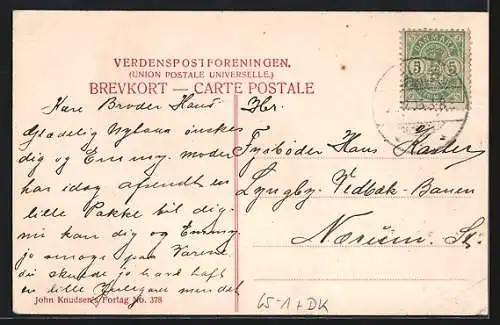 VERDENSPOSTFORENINGEN.
(UNION POSTALE UNIVERSELLE.)
BREVKORT — CARTE POSTALE
DANMARK
5 5
Kære Broder Hans
Glædelig Nytaar ønskes
dig og Emmy. moder
har idag afsendt en
lille Pakke til dig.
nu kan du og Emmy
jo smage paa Varerne.
du skulde jo havt haft
en lille Julegave men det
Hr.
Fyrbøder Hans
Lyngby-Vedbæk-Banen
Nærum St.
John Knudsen's Forlag No. 378
65-1 + DK